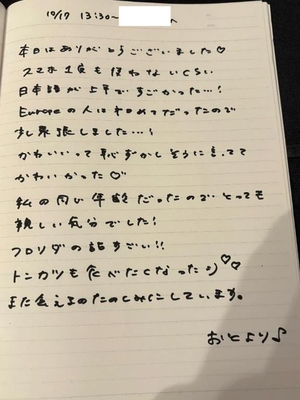 10/17 13:30〜
本日はありがとうございました♡
スマホ1度も使わないくらい
日本語が上手ですごかった…!
Europeの人は初めてだったので
緊張しました…!
かわいいって恥ずかしそうに言ってて
かわいかった♡
私の同い年齢だったのでとっても
親しい気分でした!
フロリダの話すごい!!
トンカツも食べたくなった:)♡♡
また会えるのたのしみにしています。
おとより♪